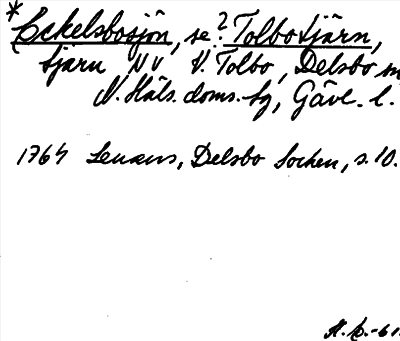 *Eckelsbosjön, se ? Tolbotjärn,
tjärn NV V. Tolbo, Delsbo sn
N. Häls. doms.-sg, Gävl. l.
1764 Lenæus, Delsbo Sochen, s. 10.